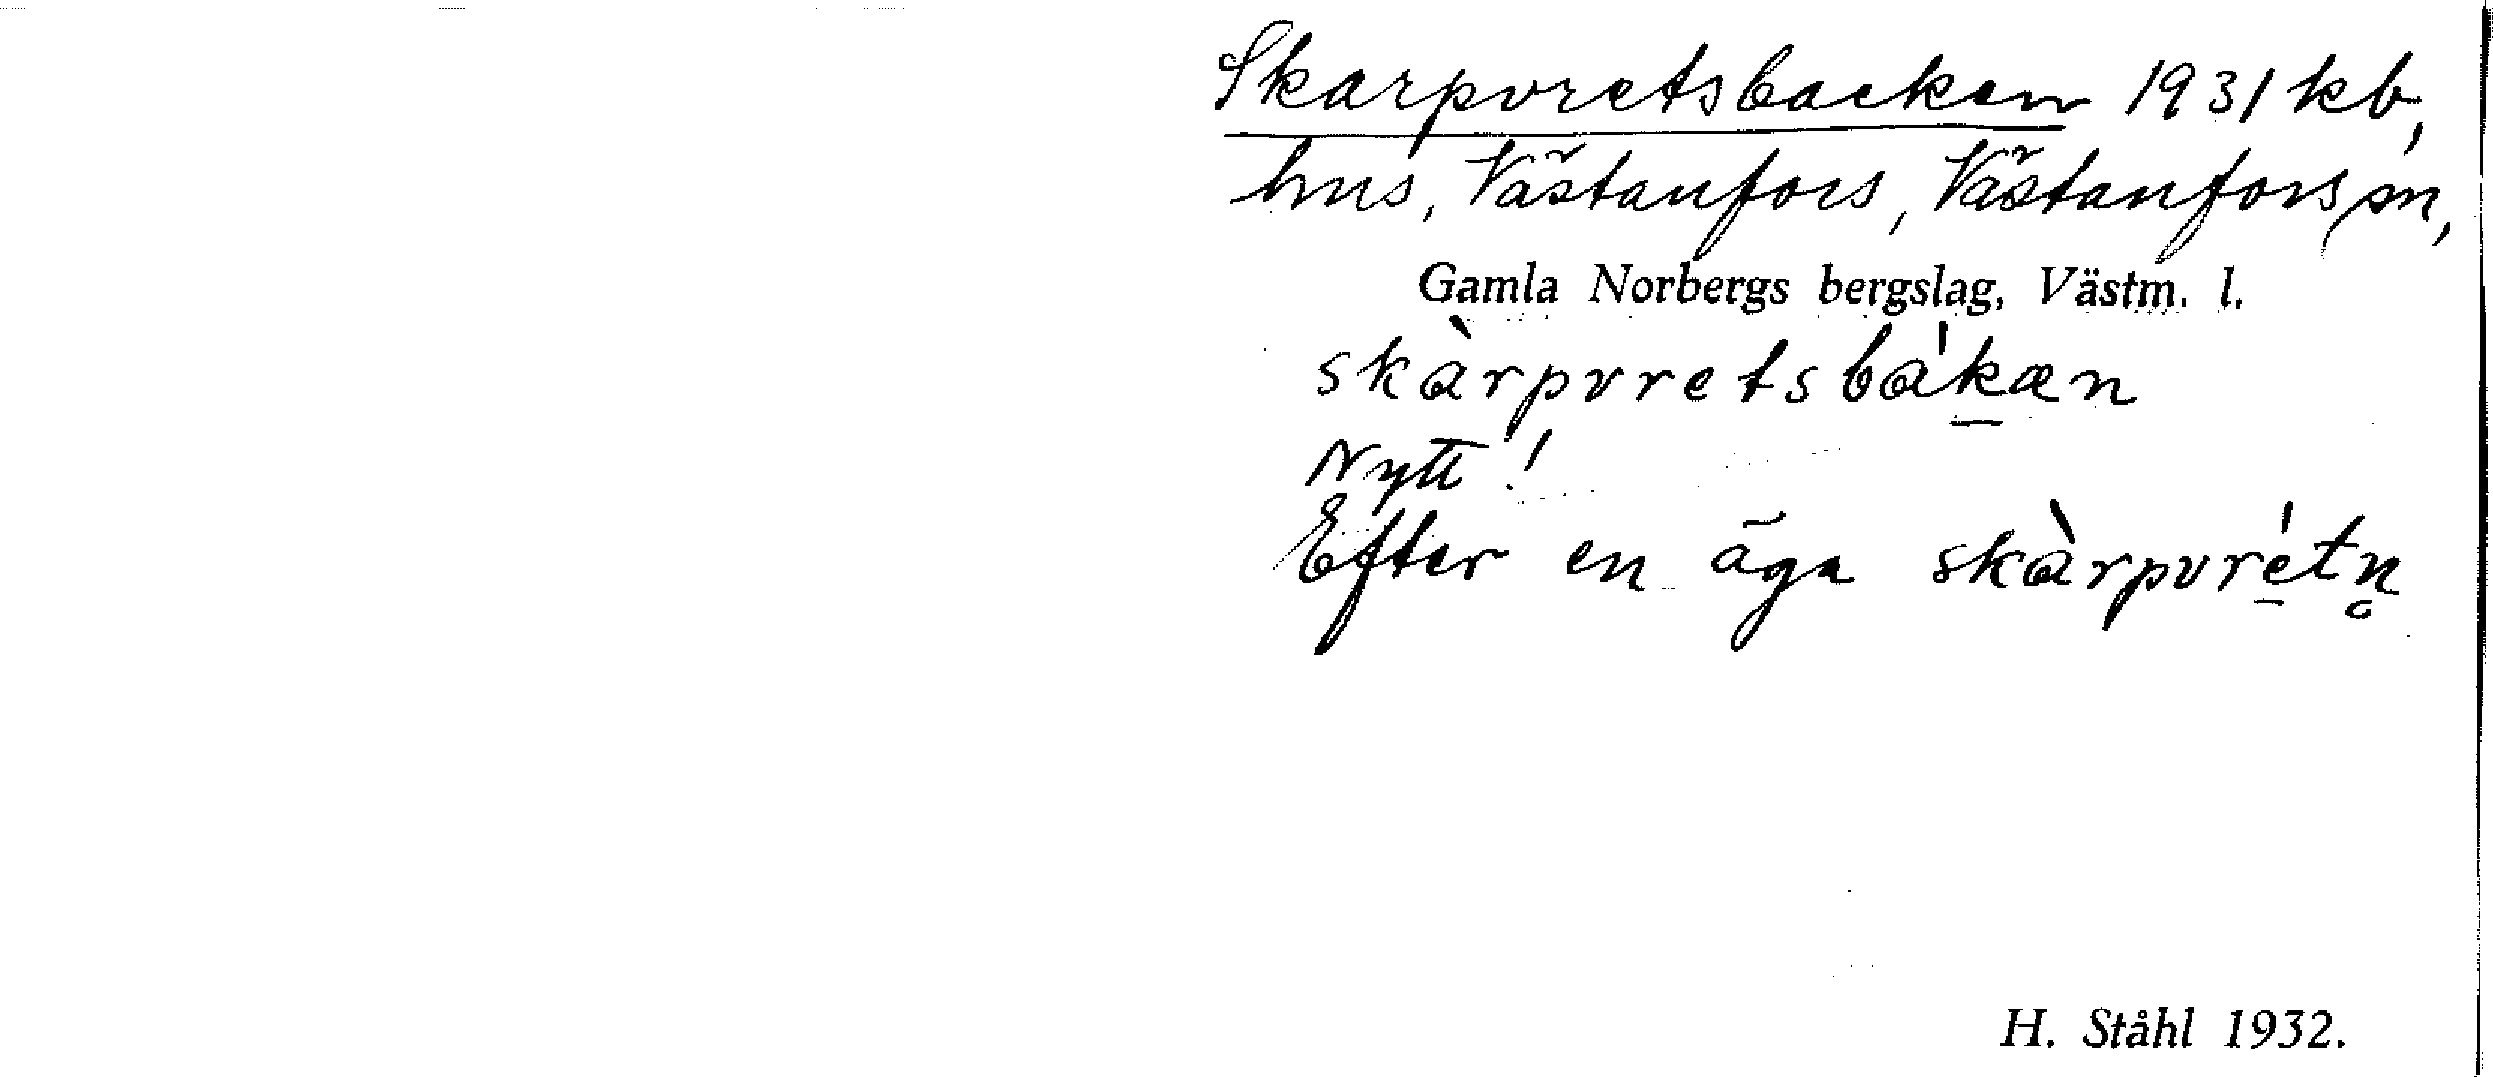 Skarpvretsbacken 1931 kb,
hus, Västanfors, Västanfors sn,
Gamla Norbergs bergslag, Västm. l.
skàrpvretsba'kæn
Nytt!
Efter en äga skàrpvre'tn̥
H. Ståhl 1932.